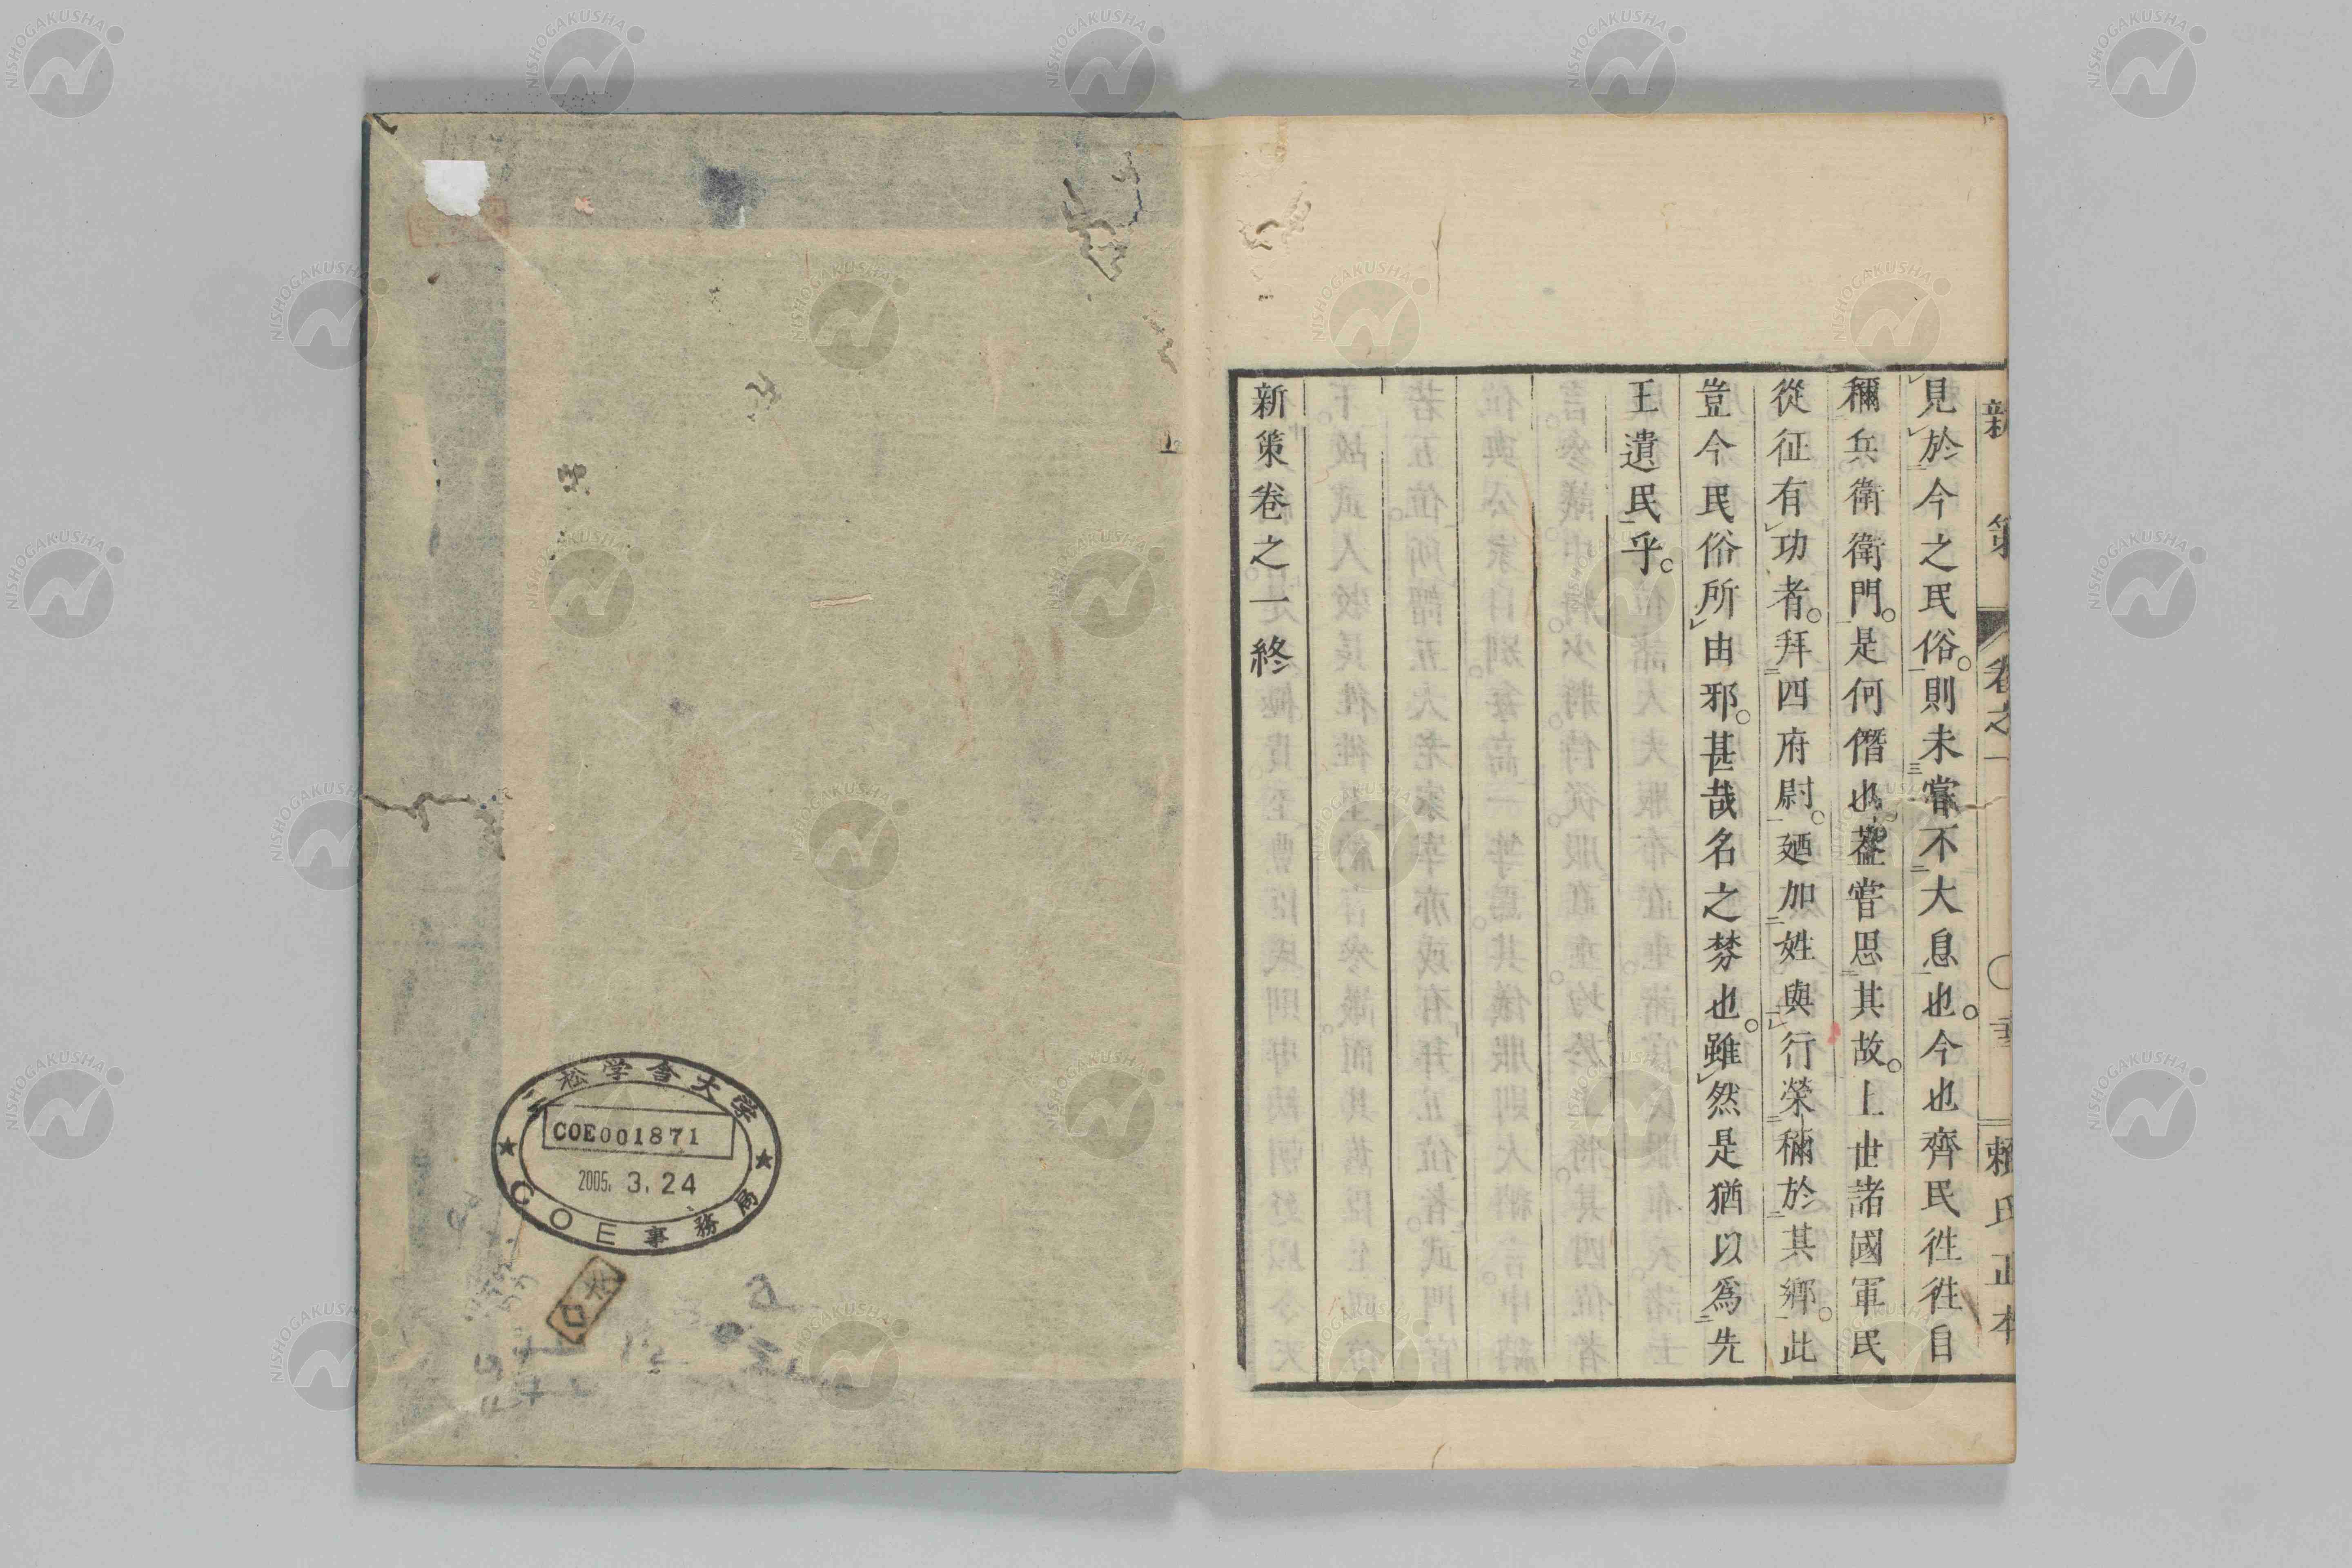 新策 卷之一 賴氏正本
見於今之民俗。則未嘗不大息也。今也齊民徃徃自
稱兵衛衛門。是何僭也。蓋嘗思其故。上世諸國軍民
從征有功者。拜四府尉。廼加姓與行榮稱於其鄉。此
豈今民俗所由邪。甚哉名之棼也。雖然是猶以爲先
王遺民乎。
新策卷之一終
二松学舎大学
COE001871
2005. 3. 24
COE事務局
NISHOGAKUSHA